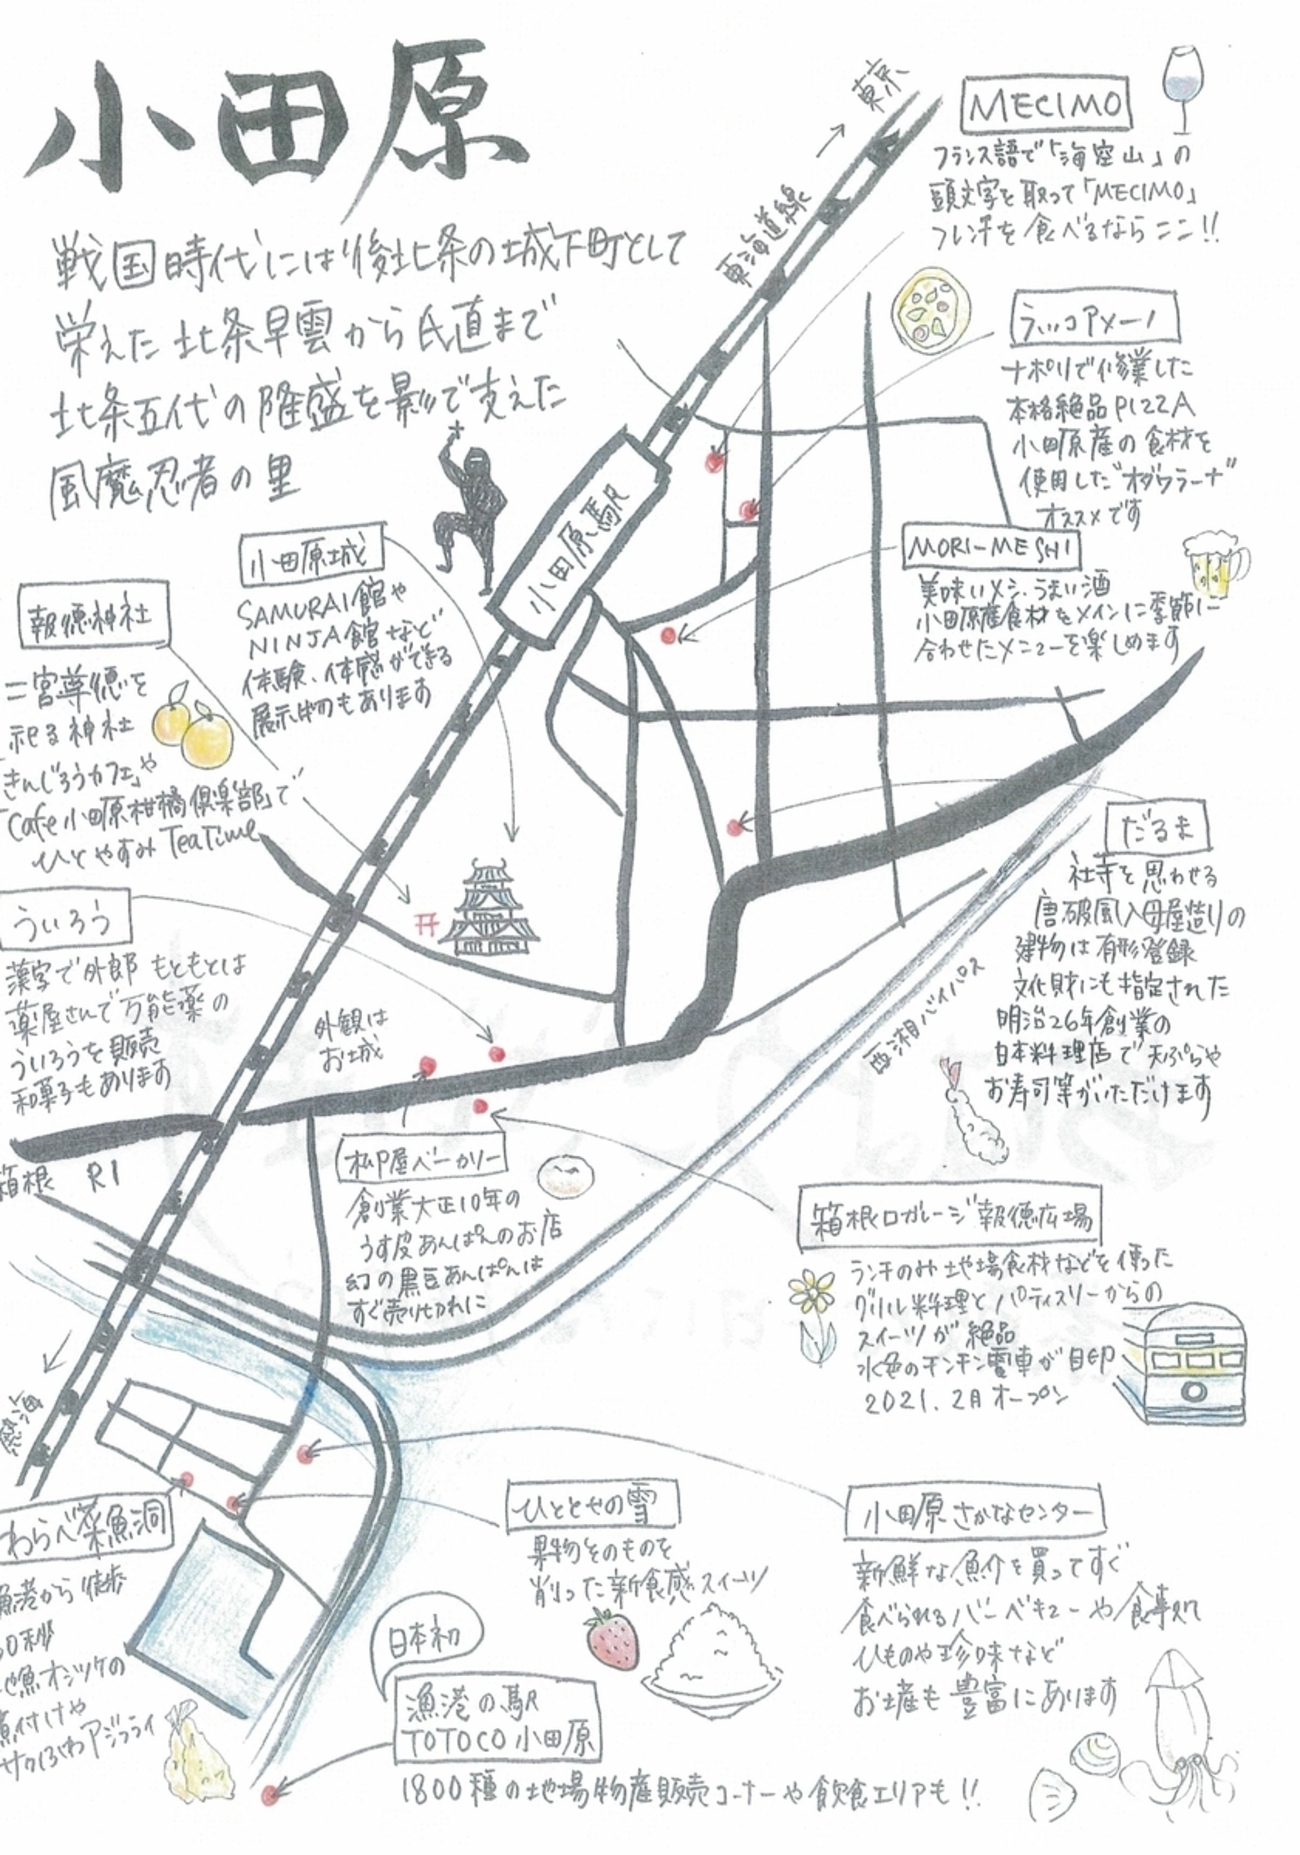 小田原
戦国時代には後北条の城下町として
栄えた北条早雲から氏直まで
北条五代の隆盛を影で支えた
風魔忍者の里
→東京
東海道線
小田原駅
MECIMO
フランス語で「海空山」の
頭文字を取って「MECIMO」
フレンチを食べるならここ!!
ラ
ナポリで修業した
本格絶品PIZZA
小田原産の食材を
使用した"オダワラーナ"
オススメです
MORI-MESHI
美味いメシ、うまい酒
小田原産食材をメインに季節に
合わせたメニューを楽しめます
小田原城
SAMURAI館や
NINJA館など
体験、体感ができる
展示物もあります
報徳神社
二宮尊徳を
祀る神社
きんじろうカフェ」や
「Cafe小田原柑橘倶楽部」で
ひとやすみTeaTime
ういろう
漢字で外郎 もともとは
薬屋さんで万能薬の
ういろうを販売
和菓子もあります
外観は
お城
だるま
社寺を思わせる
唐破風入母屋造りの
建物は有形登録
文化財にも指定された
明治26年創業の
日本料理店で天ぷらや
お寿司等がいただけます
西湘バイパス
箱根 R1
屋ベーカリー
創業大正10年の
うす皮あんぱんのお店
幻の黒豆あんぱんは
すぐ売り切れに
箱根口ガレージ報徳広場
ランチのみ地場食材などを使った
グリル料理とパティスリーからの
スイーツが絶品
水色のチンチン電車が目印
2021.2月オープン
熱海
わらべ菜魚洞
漁港から徒歩
30秒
地魚オンリーの
煮付けや
サクふわアジフライ
ひととせの雪
果物そのものを
削った新食感スイーツ
小田原さかなセンター
新鮮な魚介を買ってすぐ
食べられるバーベキューや食事処
ひものや珍味など
お土産も豊富にあります
日本初
漁港の駅
TOTOCO小田原
1800種の地場物産販売コーナーや飲食エリアも!!